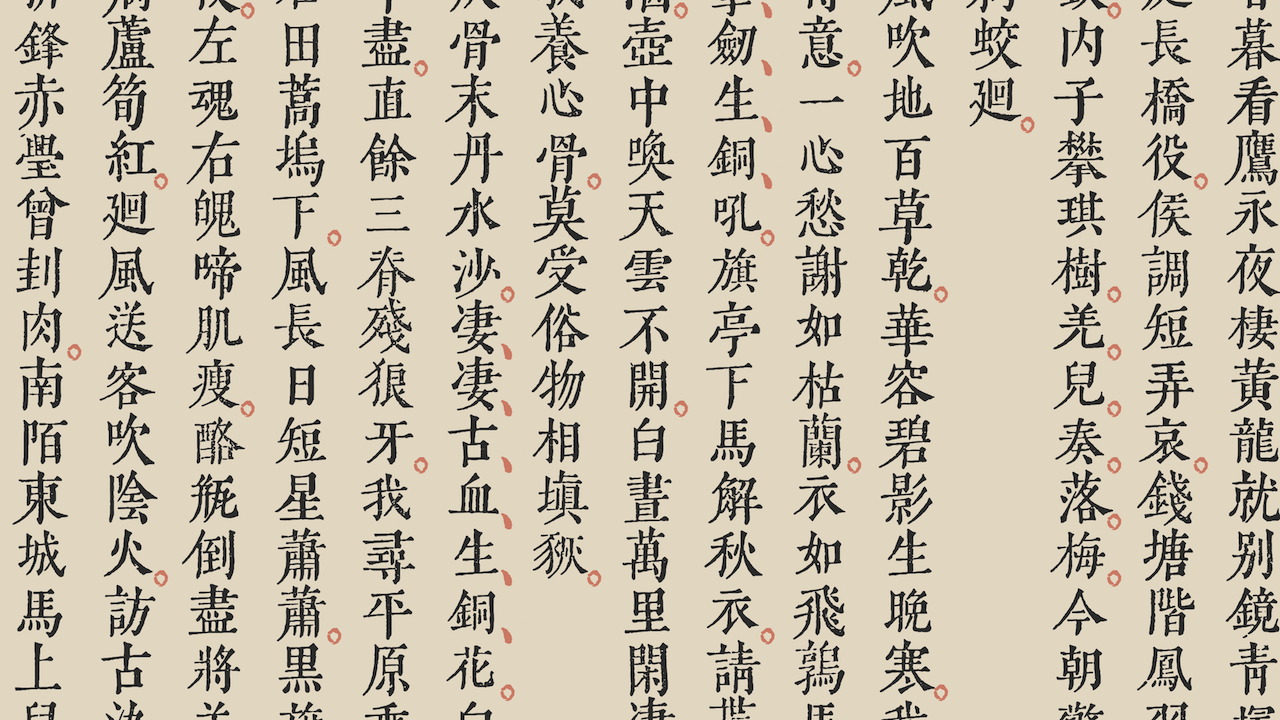 暮看鷹永夜棲黃龍就別鏡青塚
長橋役。侯調短弄哀。錢塘階鳳羽
內子攀琪樹。羌。兒。奏。落。梅。今朝擎
刺蛟廻。
風吹地百草乾。華容碧影生晚寒。我
得意。一心愁謝如枯蘭。衣如飛鶉馬
擊、劒、生、銅、吼。旗亭下馬解秋衣請貰
酒。壺中喚天雲不開。白晝萬里閑凄
我養心骨。莫受俗物相塡豗。
灰骨末丹水沙。凄、凄、古、血、生、銅、花。白
竿盡。直餘三脊殘狼牙。我尋平原乘
石田蒿塢下。風長日短星蕭蕭。黑旗
夜。左魂右魄啼肌瘦。酪瓶倒盡將羊
蘆筍紅。廻風送客吹陰火。訪古汍
折鋒赤璺曾刲肉。南陌東城馬上兒